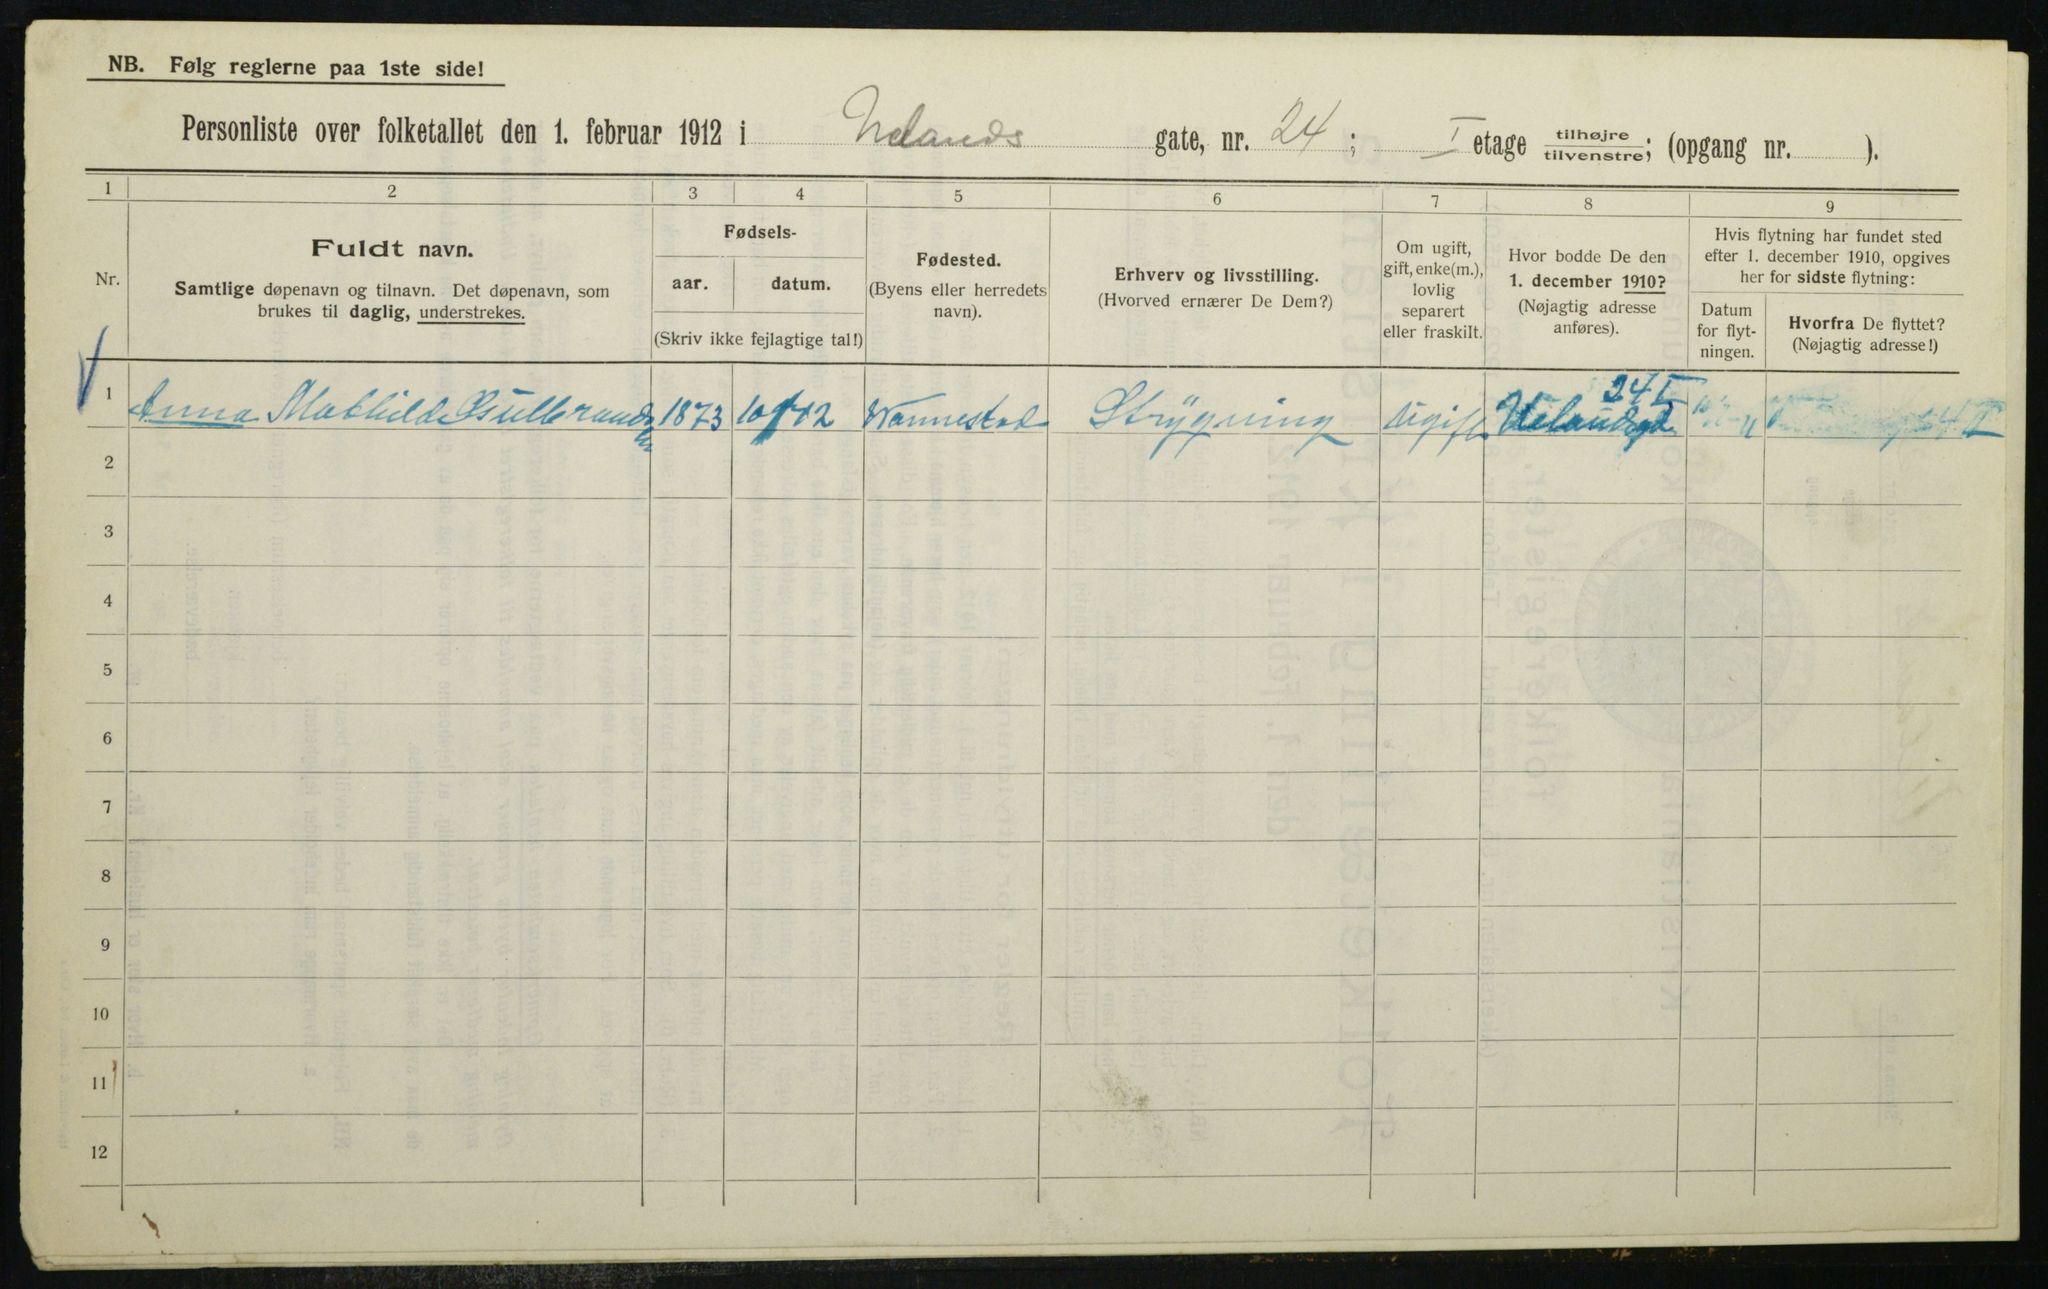 NB. Følg reglerne paa 1ste side!
Personliste over folketallet den 1. februar 1912 i Uelands gate, nr. 24; I etage tilhøjre tilvenstre; (opgang nr. ).
1 2 3 4 5 6 7 8 9
Nr.
Fuldt navn.
Samtlige døpenavn og tilnavn. Det døpenavn, som
brukes til daglig, understrekes.
Fødsels-
aar. datum.
(Skriv ikke fejlagtige tal!)
Fødested.
(Byens eller herredets
navn).
Erhverv og livsstilling.
(Hvorved ernærer De Dem?)
Om ugift,
gift, enke(m.),
lovlig
separert
eller fraskilt.
Hvor bodde De den
1. december 1910?
(Nøjagtig adresse
anføres).
Hvis flytning har fundet sted
efter 1. december 1910, opgives
her for sidste flytning:
Datum
for flyt-
ningen.
Hvorfra De flyttet?
(Nøjagtig adresse!)
24 I
1 Anna Mathilde Gulbrandsen 1873 Strygning Ugift Uelandsgd
2
3
4
5
6
7
8
9
10
11
12